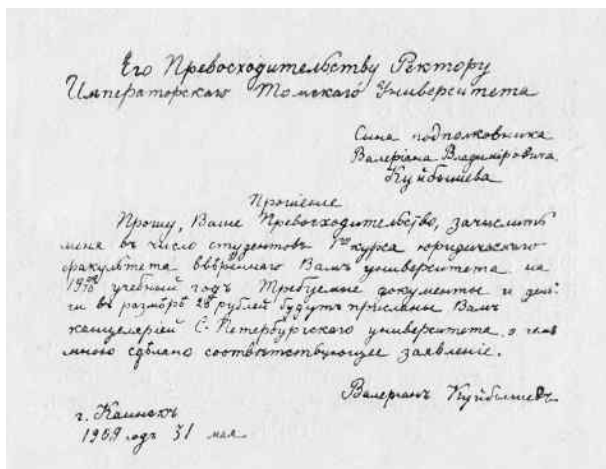 Его Превосходительству Ректору
Императорскаго Томскаго Университета
Сына подполковника
Валеріана Владиміровича
Куйбышева
Прошение
Прошу, Ваше Превосходительство, зачислить
меня въ число студентовъ 1го курса юридическаго
факультета ввѣреннаго Вамъ университета на
учебный годъ. Требуемые документы и день-
ги въ размѣрѣ 28 рублей будутъ присланы Вамъ
канцеляріей С.-Петербургскаго университета, о чемъ
мною сдѣлано соотвѣтствующее заявленіе.
Валеріанъ Куйбышевъ
г. Каинскъ
1909 годъ 31 мая